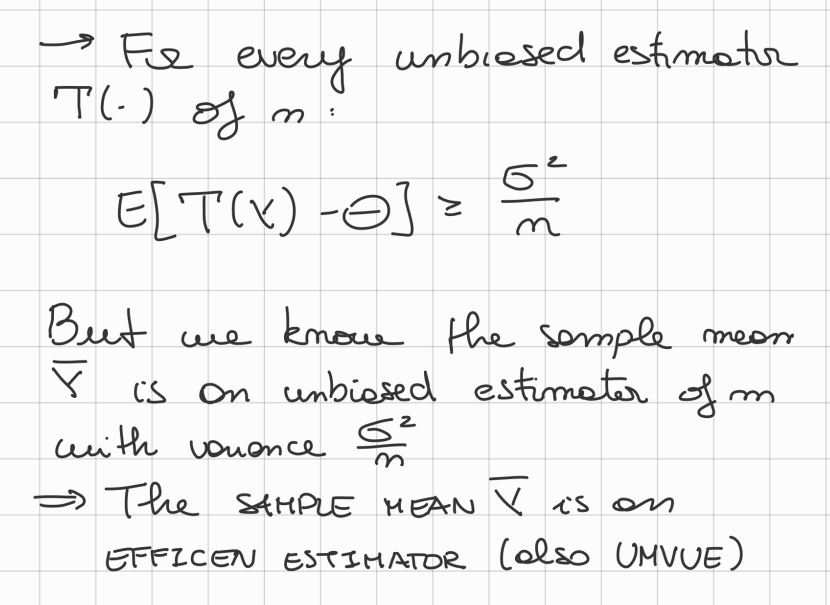 → For every unbiased estimator
T(·) of m:
E[T(Y) - Θ] ≥ σ²/n
But we know the sample mean
Y̅ is an unbiased estimator of m
with variance σ²/n
⇒ The SAMPLE MEAN Y̅ is an
EFFICEN ESTIMATOR (also UMVUE)